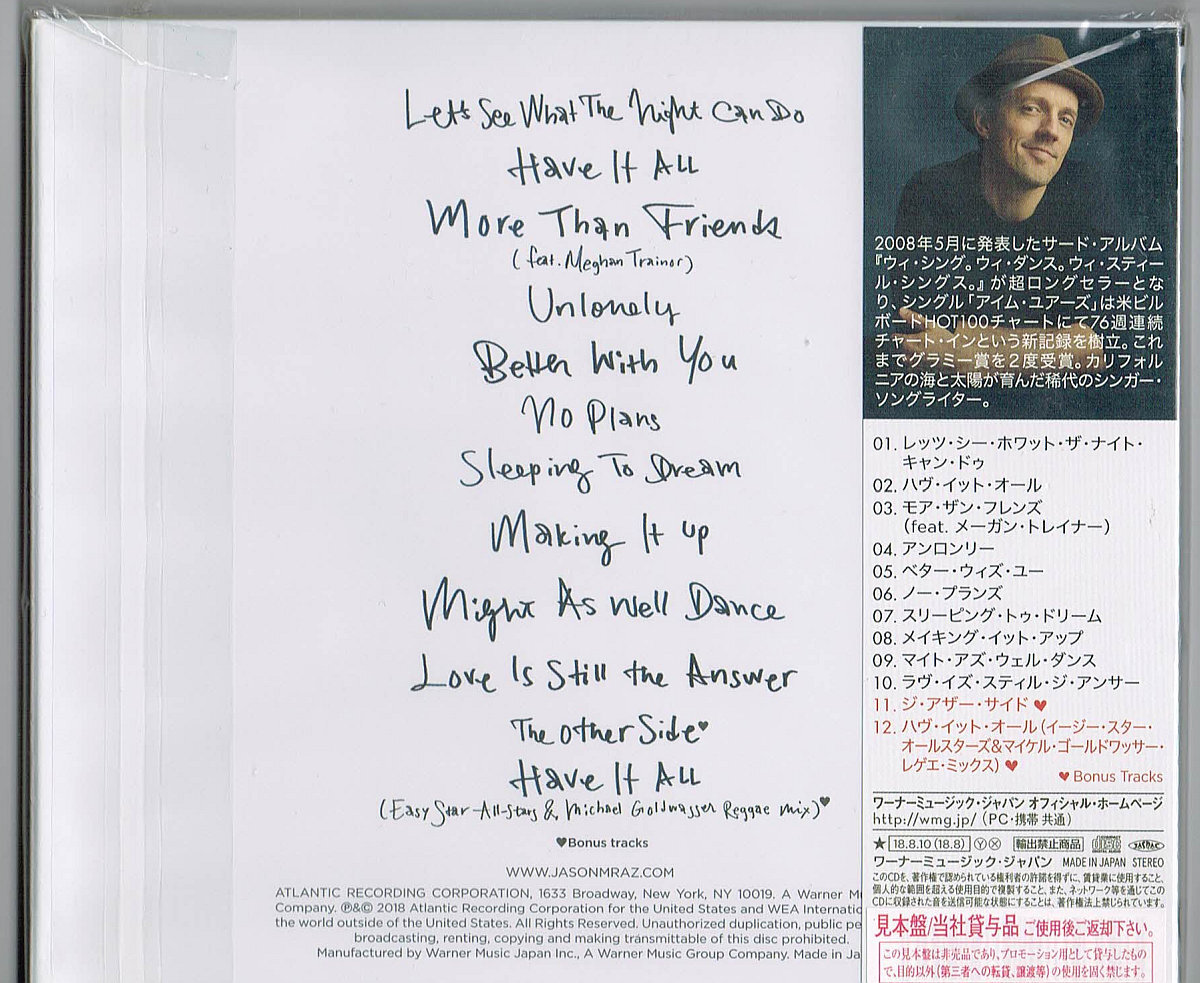 Let's See What The Night Can Do
Have It All
More Than Friends
(feat. Meghan Trainor)
Unlonely
Better With You
No Plans
Sleeping To Dream
Making It Up
Might As Well Dance
Love Is Still the Answer
The Other Side♥
Have It All
(Easy Star All-Stars & Michael Goldwasser Reggae Mix)♥
♥Bonus tracks
WWW.JASONMRAZ.COM
ATLANTIC RECORDING CORPORATION, 1633 Broadway, New York, NY 10019. A Warner Mu
Company. ℗&© 2018 Atlantic Recording Corporation for the United States and WEA Internatio
the world outside of the United States. All Rights Reserved. Unauthorized duplication, public pe
broadcasting, renting, copying and making transmittable of this disc prohibited.
Manufactured by Warner Music Japan Inc., A Warner Music Group Company. Made in Ja
2008年5月に発表したサード・アルバム
『ウィ・シング。ウィ・ダンス。ウィ・スティー
ル・シングス。』が超ロングセラーとな
り、シングル「アイム・ユアーズ」は米ビル
ボードHOT100チャートにて76週連続
チャート・インという新記録を樹立。これ
までグラミー賞を2度受賞。カリフォル
ニアの海と太陽が育んだ稀代のシンガー・
ソングライター。
01. レッツ・シー・ホワット・ザ・ナイト・
キャン・ドゥ
02. ハヴ・イット・オール
03. モア・ザン・フレンズ
(feat. メーガン・トレイナー)
04. アンロンリー
05. ベター・ウィズ・ユー
06. ノー・プランズ
07. スリーピング・トゥ・ドリーム
08. メイキング・イット・アップ
09. マイト・アズ・ウェル・ダンス
10. ラヴ・イズ・スティル・ジ・アンサー
11. ジ・アザー・サイド ♥
12. ハヴ・イット・オール(イージー・スター・
オールスターズ&マイケル・ゴールドワッサー・
レゲエ・ミックス) ♥
♥ Bonus Tracks
ワーナーミュージック・ジャパン オフィシャル・ホームページ
http://wmg.jp/ (PC・携帯 共通)
★ 18.8.10 (18.8) Ⓨ Ⓧ 輸出禁止商品 JASRAC
ワーナーミュージック・ジャパン MADE IN JAPAN STEREO
このCDを、著作権で認められている権利者の許諾を得ずに、賃貸業に使用すること、
個人的な範囲を超える使用目的で複製すること、また、ネットワーク等を通じてこの
CDに収録された音を送信可能な状態にすることは、著作権法上禁じられています。
見本盤/当社貸与品 ご使用後ご返却下さい。
この見本盤は非売品であり、プロモーション用として貸与したもの
で、目的以外(第三者への転貸、譲渡等)の使用を固く禁じます。